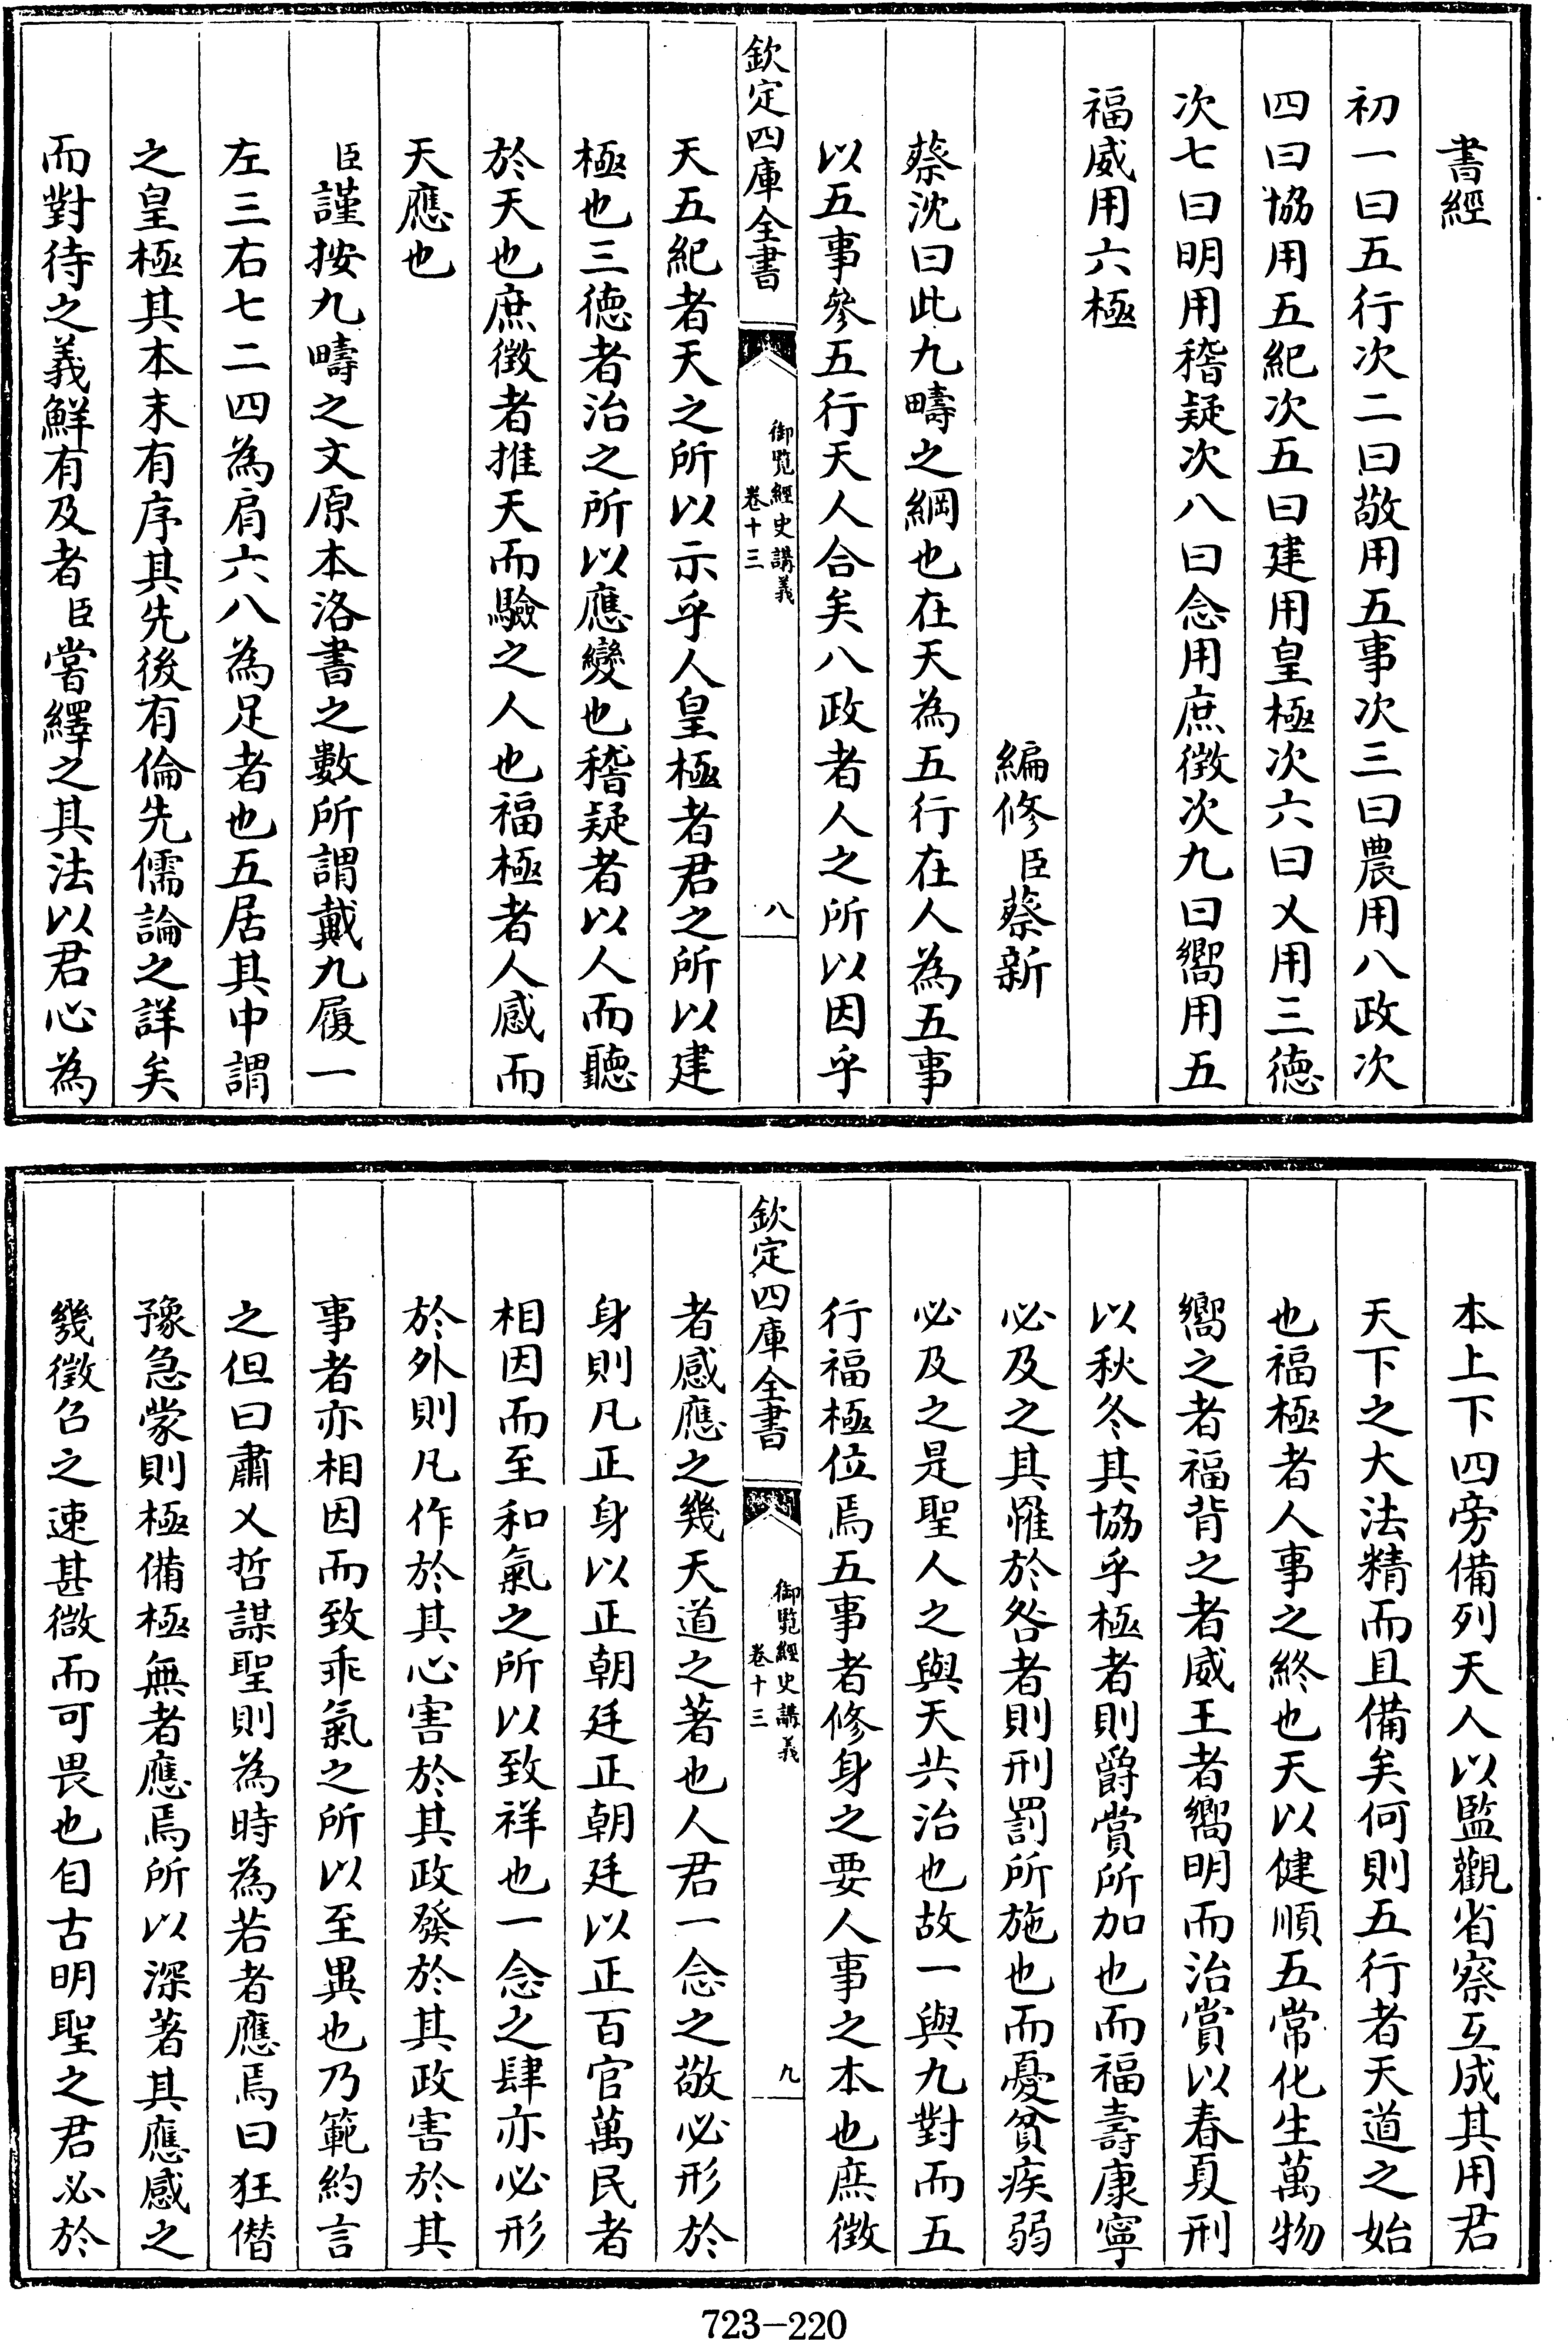 書經
初一曰五行次二曰敬用五事次三曰農用八政次
四曰協用五紀次五曰建用皇極次六曰乂用三德
次七曰明用稽疑次八曰念用庶徵次九曰嚮用五
福威用六極
編修臣蔡新
蔡沈曰此九疇之綱也在天為五行在人為五事
以五事參五行天人合矣八政者人之所以因乎
欽定四庫全書
御覽經史講義
卷十三
八
天五紀者天之所以示乎人皇極者君之所以建
極也三德者治之所以應變也稽疑者以人而聽
於天也庶徵者推天而驗之人也福極者人感而
天應也
臣謹按九疇之文原本洛書之數所謂戴九履一
左三右七二四為肩六八為足者也五居其中謂
之皇極其本末有序其先後有倫先儒論之詳矣
而對待之義鮮有及者臣嘗繹之其法以君心為
本上下四旁備列天人以監觀省察互成其用君
天下之大法精而且備矣何則五行者天道之始
也福極者人事之終也天以健順五常化生萬物
嚮之者福背之者威王者嚮明而治賞以春夏刑
以秋冬其協乎極者則爵賞所加也而福壽康寧
必及之其罹於咎者則刑罰所施也而憂貧疾弱
必及之是聖人之與天共治也故一與九對而五
行福極位焉五事者修身之要人事之本也庶徵
欽定四庫全書
御覽經史講義
卷十三
九
者感應之幾天道之著也人君一念之敬必形於
身則凡正身以正朝廷正朝廷以正百官萬民者
相因而至和氣之所以致祥也一念之肆亦必形
於外則凡作於其心害於其政發於其政害於其
事者亦相因而致乖氣之所以至異也乃範約言
之但曰肅乂哲謀聖則為時為若者應焉曰狂僭
豫急蒙則極備極無者應焉所以深著其應感之
幾徵召之速甚微而可畏也自古明聖之君必於
723-220